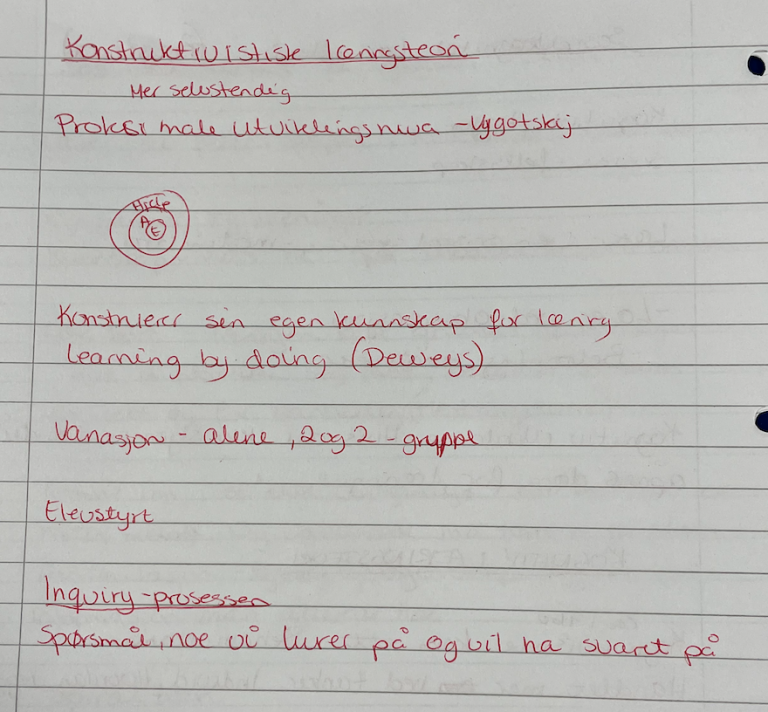 Konstruktivistisk læringsteori
Mer selvstendig
Proksimale utviklingsniva - Vygotskij
A
E
Konstruerer sin egen kunnskap for læring
Learning by doing (Deweys)
Variasjon - alene, 2 og 2 - gruppe
Elevstyrt
Inquiry-prosessen
Spørsmål, noe vi lurer på og vil ha svaret på